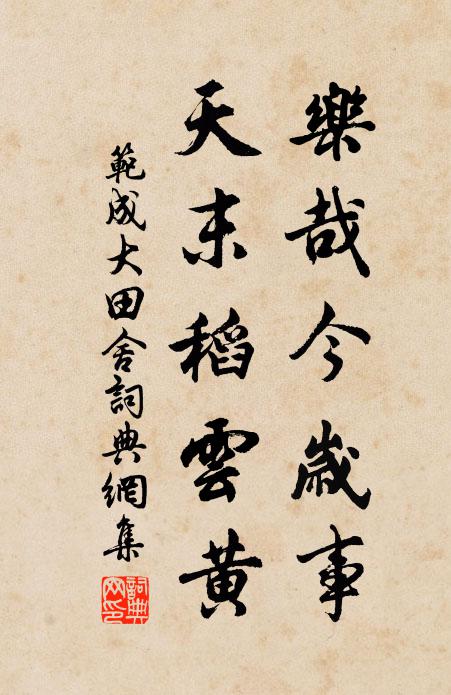 樂哉今歲事
天末稻雲黃
範成大田舍詞典網集
詞典网印